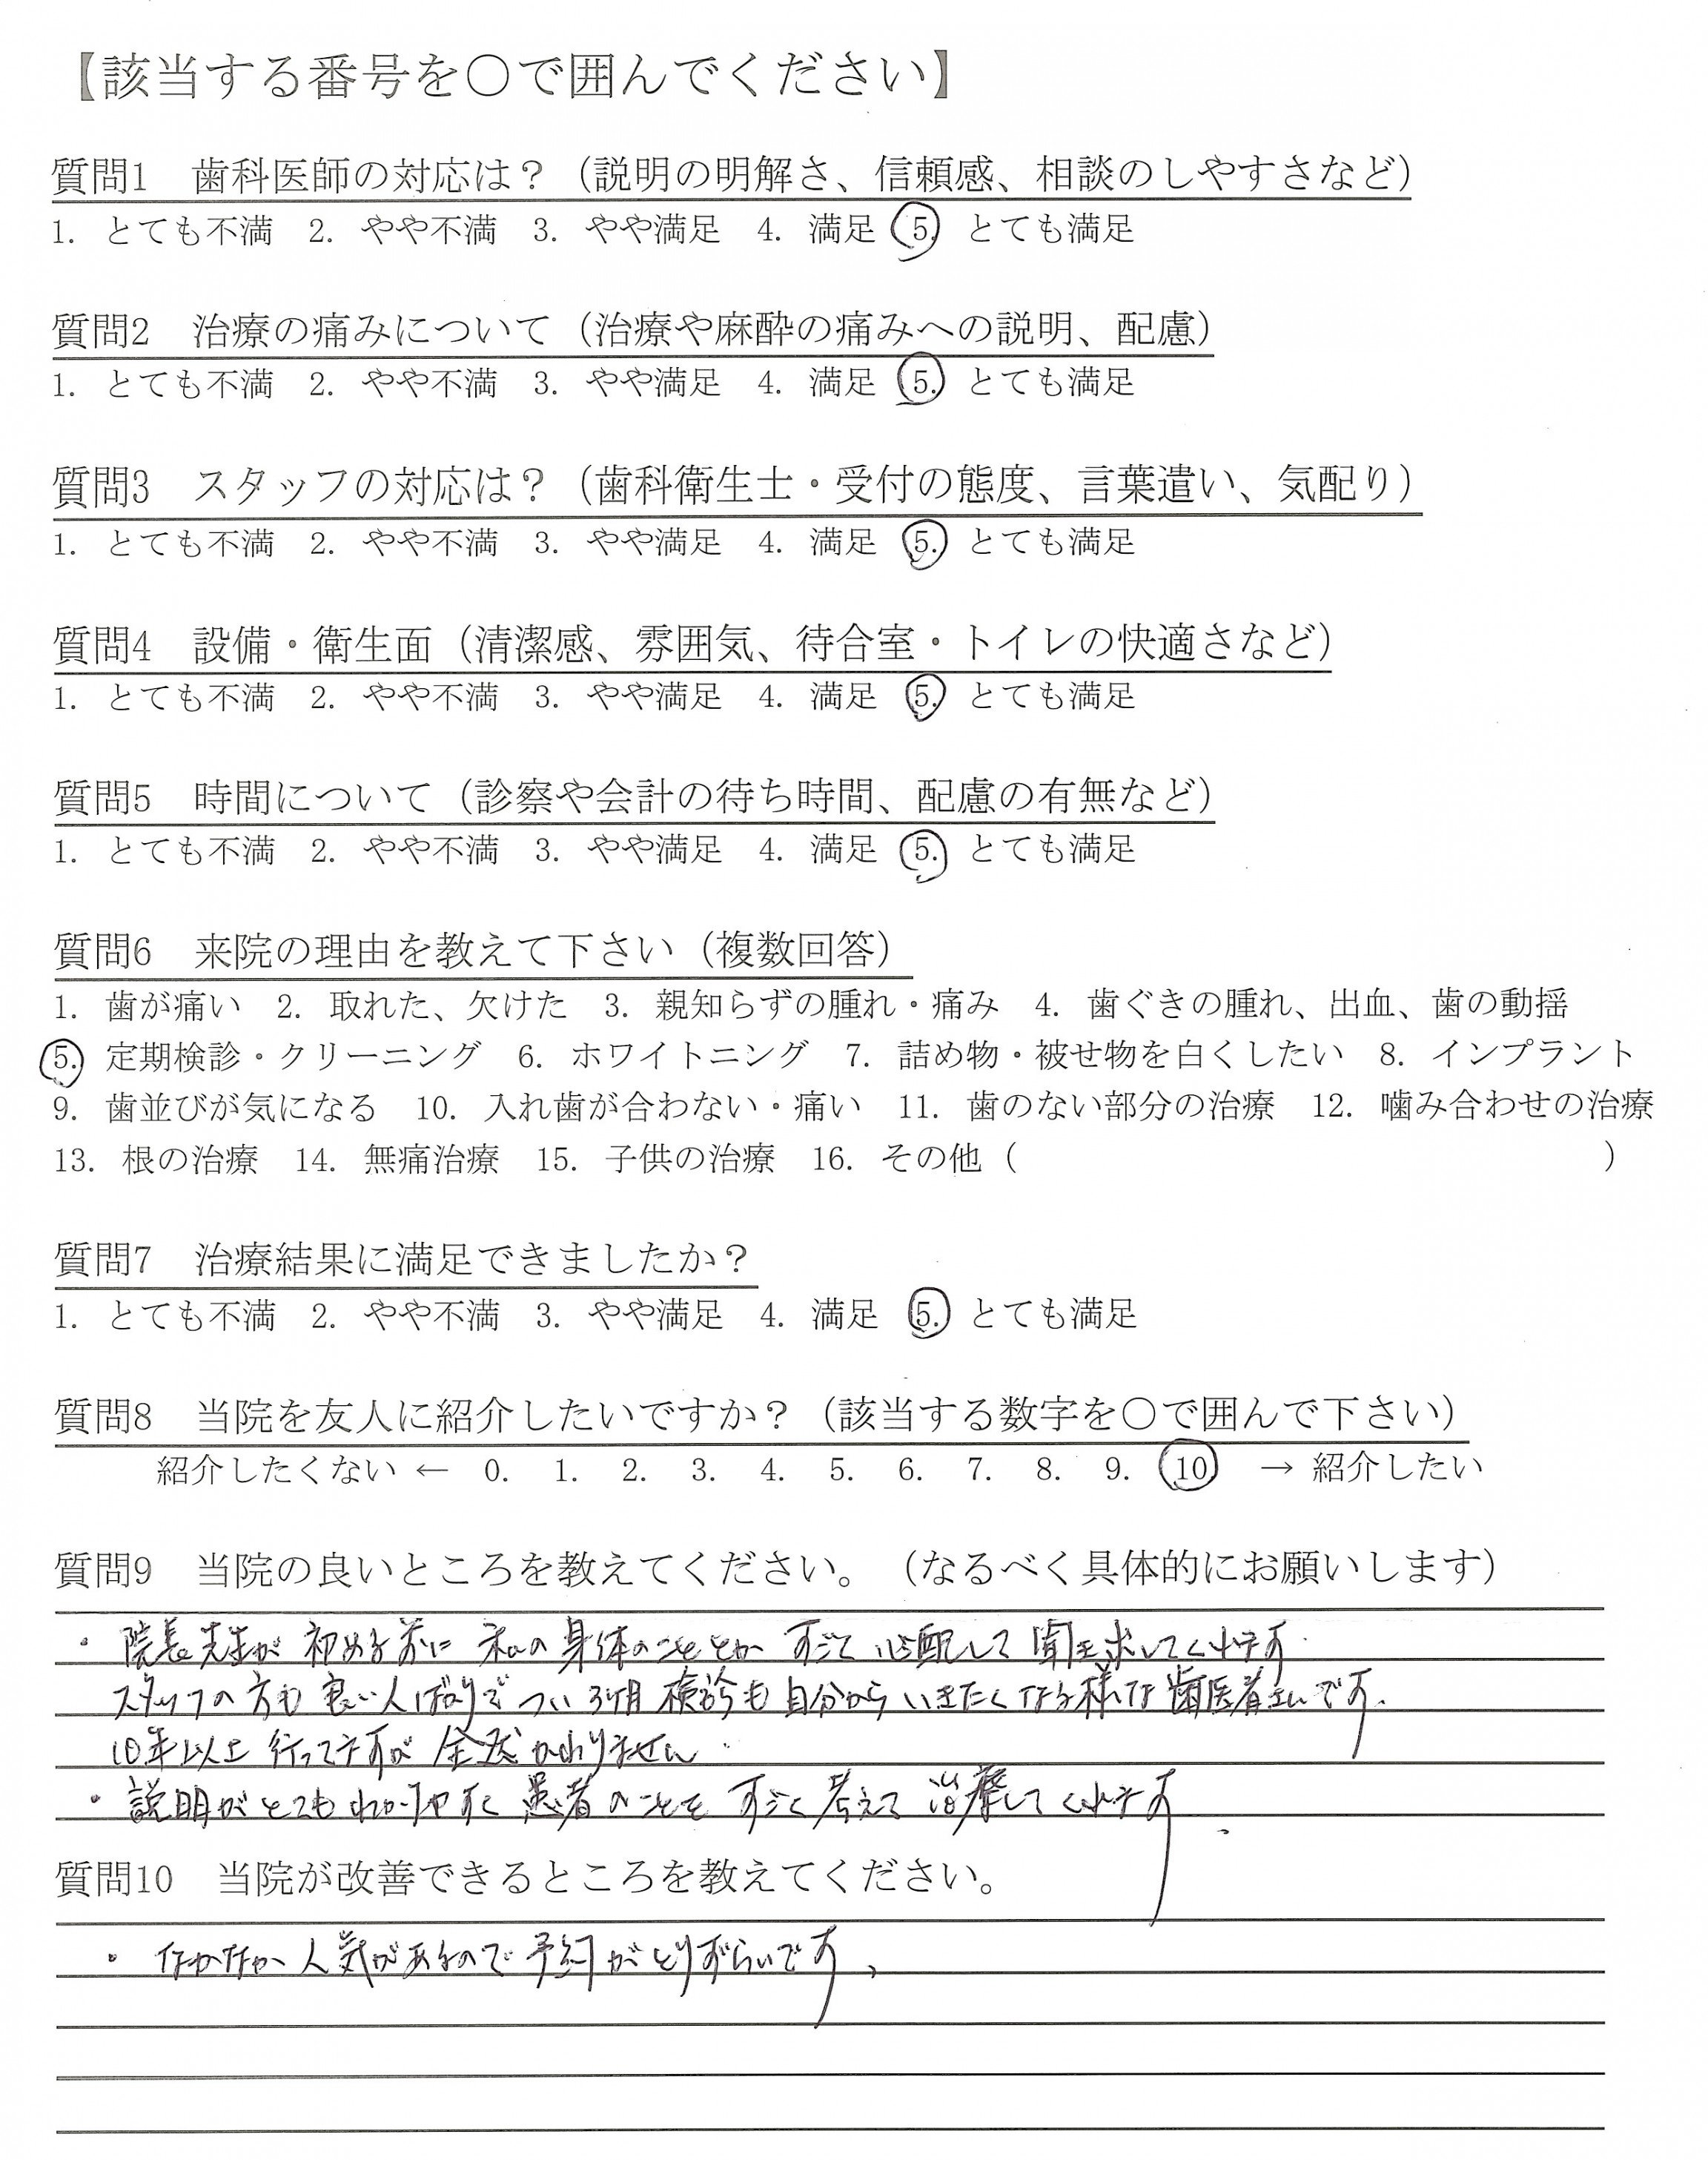 【該当する番号を〇で囲んでください】
質問1　歯科医師の対応は？（説明の明解さ、信頼感、相談のしやすさなど）
1. とても不満　2. やや不満　3. やや満足　4. 満足　5. とても満足
質問2　治療の痛みについて（治療や麻酔の痛みへの説明、配慮）
1. とても不満　2. やや不満　3. やや満足　4. 満足　5. とても満足
質問3　スタッフの対応は？（歯科衛生士・受付の態度、言葉遣い、気配り）
1. とても不満　2. やや不満　3. やや満足　4. 満足　5. とても満足
質問4　設備・衛生面（清潔感、雰囲気、待合室・トイレの快適さなど）
1. とても不満　2. やや不満　3. やや満足　4. 満足　5. とても満足
質問5　時間について（診察や会計の待ち時間、配慮の有無など）
1. とても不満　2. やや不満　3. やや満足　4. 満足　5. とても満足
質問6　来院の理由を教えて下さい（複数回答）
1. 歯が痛い　2. 取れた、欠けた　3. 親知らずの腫れ・痛み　4. 歯ぐきの腫れ、出血、歯の動揺
5. 定期検診・クリーニング　6. ホワイトニング　7. 詰め物・被せ物を白くしたい　8. インプラント
9. 歯並びが気になる　10. 入れ歯が合わない・痛い　11. 歯のない部分の治療　12. 噛み合わせの治療
13. 根の治療　14. 無痛治療　15. 子供の治療　16. その他（　　　）
質問7　治療結果に満足できましたか？
1. とても不満　2. やや不満　3. やや満足　4. 満足　5. とても満足
質問8　当院を友人に紹介したいですか？（該当する数字を〇で囲んで下さい）
紹介したくない ← 0. 1. 2. 3. 4. 5. 6. 7. 8. 9. 10 → 紹介したい
質問9　当院の良いところを教えてください。（なるべく具体的にお願いします）
・院長先生が 初める前に 私の身体のこととか すごく心配して してくれます
スタッフの方も 良い人ばかりで つい3ヶ月検診も 自分から いきたくなる様な 歯医者さんです.
10年以上 行ってますが 全然かわりません
・説明がとてもわかりやすく 患者のことを すごく考えて 治療してくれます
質問10　当院が改善できるところを教えてください。
・なかなか 人気があるので 予約がとりずらいです、